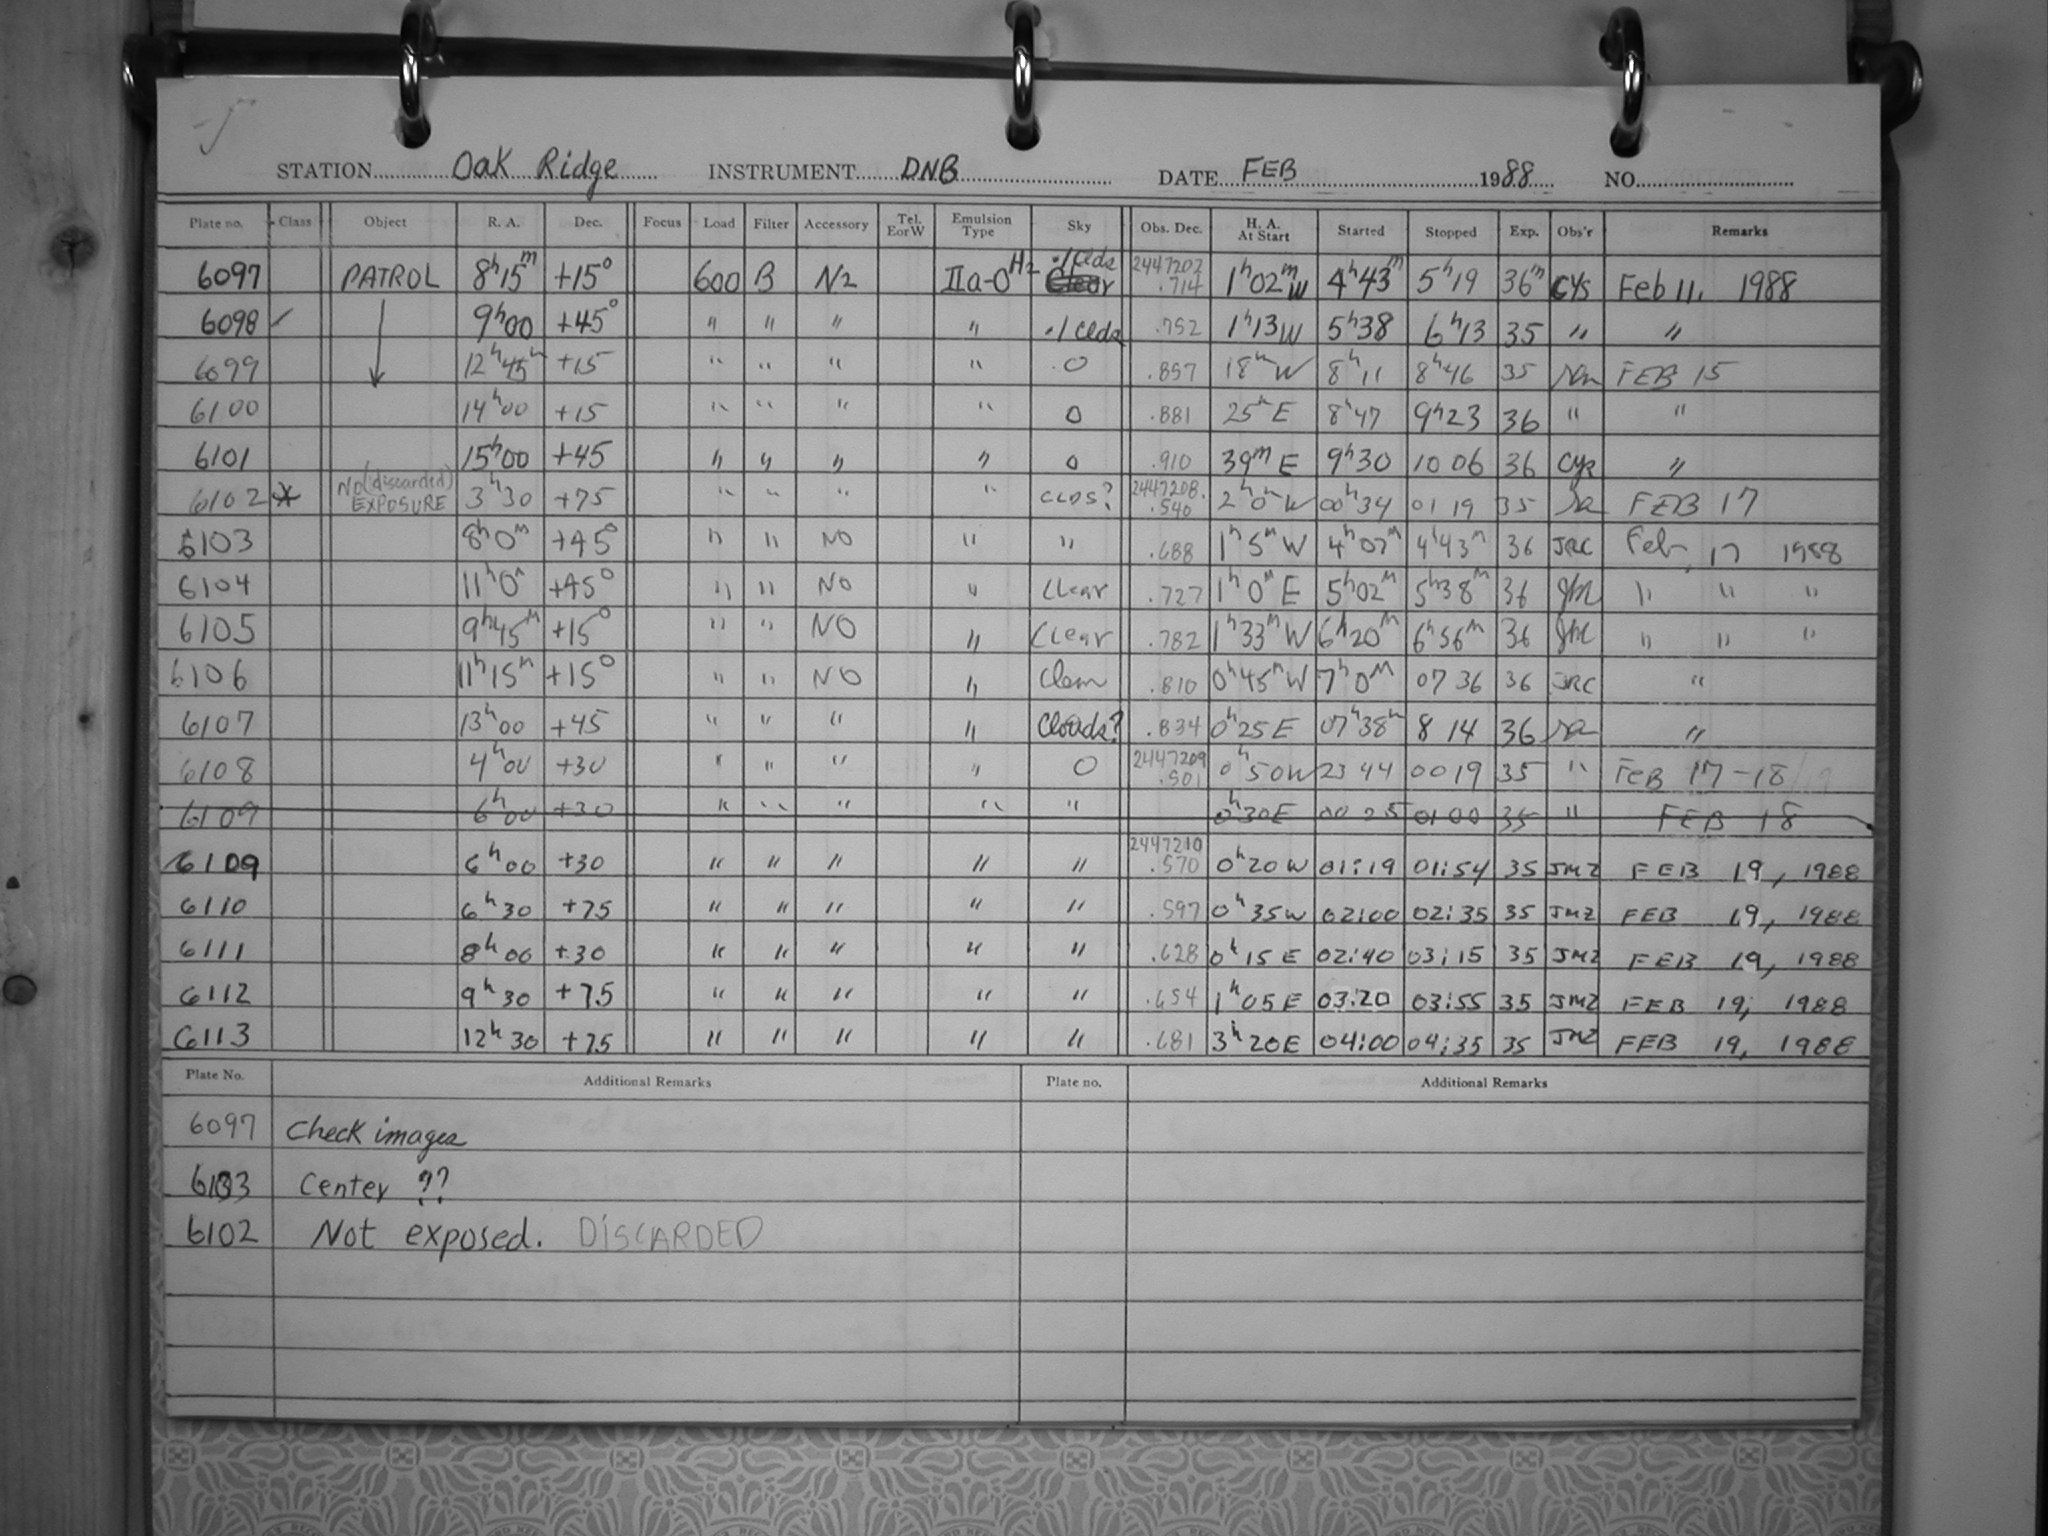 STATION Oak Ridge INSTRUMENT DNB DATE FEB 1988 NO.
Plate no. Class Object R. A. Dec. Focus Load Filter Accessory Tel. E or W Emulsion Type Sky Obs. Dec. H. A. At Start Started Stopped Exp. Obs'r Remarks
6097 PATROL 8h15m +15° 600 B N2 IIa-O H2 .1 clds 2447202 .714 1h02mW 4h43m 5h19 36m CYS Feb 11, 1988
6098 ✓ 9h00 +45° " " " " .1 clds .752 1h13W 5h38 6h13 35 " "
6099 12h45m +15 " " " " 0 .857 18mW 8h11 8h46 35 FEB 15
6100 14h00 +15 " " " " 0 .881 25mE 8h47 9h23 36 " "
6101 15h00 +45 " " " " 0 .910 39mE 9h30 10 06 36 CYS "
6102 * NO (discarded) EXPOSURE 3h30 +75 " " " " CLDS? 2447208. .540 2h0mW 00h34 01 19 35 FEB 17
6103 8h0m +45° " " NO " " .688 1h5mW 4h07m 4h43m 36 JRC Feb, 17 1988
6104 11h0m +45° " " NO " Clear .727 1h0mE 5h02m 5h38m 36 " " "
6105 9h45m +15° " " NO " Clear .782 1h33mW 6h20m 6h56m 36 " " "
6106 11h15m +15° " " NO " Clear .810 0h45mW 7h0m 07 36 36 JRC "
6107 13h00 +45 " " " " Clouds? .834 0h25E 07h38m 8 14 36 "
6108 4h00 +30 " " " " 0 2447209 .501 0h50W 23 44 00 19 35 " FEB 17-18
6109 6h00 +30 " " " " " 0h30E 00 25 01 00 35 " FEB 18
6109 6h00 +30 " " " " " 2447210 .570 0h20W 01:19 01:54 35 JMZ FEB 19, 1988
6110 6h30 +75 " " " " " .597 0h35W 02:00 02:35 35 JMZ FEB 19, 1988
6111 8h00 +30 " " " " " .628 0h15E 02:40 03:15 35 JMZ FEB 19, 1988
6112 9h30 +75 " " " " " .654 1h05E 03:20 03:55 35 JMZ FEB 19, 1988
6113 12h30 +75 " " " " " .681 3h20E 04:00 04:35 35 JMZ FEB 19, 1988
Plate No. Additional Remarks Plate no. Additional Remarks
6097 Check images
6103 Center ??
6102 Not exposed. DISCARDED